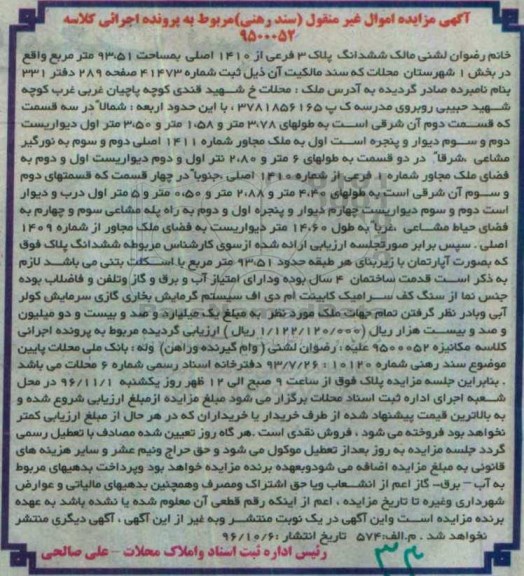 آگهی مزایده اموال غیر منقول (سند رهنی)مربوط به پرونده اجرائی کلاسه
۹۵۰۰۰۵۲
خانم رضوان لشنی مالک ششدانگ پلاک ۳ فرعی از ۱۴۱۰ اصلی بمساحت ۹۳/۵۱ متر مربع واقع
در بخش ۱ شهرستان محلات که سند مالکیت آن ذیل ثبت شماره ۴۱۴۷۳ صفحه ۲۸۹ دفتر ۳۳۱
بنام نامبرده صادر گردیده به آدرس ملک : محلات خ شهید قندی کوچه پاچیان غربی غرب کوچه
شهید حبیبی روبروی مدرسه ک پ ۳۷۸۱۸۵۶۱۶۵ ، با این حدود اربعه : شمالاً در سه قسمت
که قسمت دوم آن شرقی است به طولهای ۳/۷۸ متر و ۱/۵۸ متر و ۳/۵۰ متر اول دیواریست
دوم و سوم دیوار و پنجره است اول به ملک مجاور شماره ۱۴۱۱ اصلی دوم و سوم به نورگیر
مشاعی ،شرقاً در دو قسمت به طولهای ۶ متر و ۲/۸۰ نتر اول و دوم دیواریست اول و دوم به
فضای ملک مجاور شماره ۱ فرعی از شماره ۱۴۱۰ اصلی ،جنوباً در چهار قسمت که قسمتهای دوم
و سوم آن شرقی است به طولهای ۴/۲۰ متر و ۲/۸۸ متر و ۰/۵۰ متر و ۵ متر اول درب و دیوار
است دوم و سوم دیواریست چهارم دیوار و پنجره اول و دوم به راه پله مشاعی سوم و چهارم به
فضای حیاط مشاعی ،غرباً به طول ۱۴/۶۰ متر دیواریست به فضای ملک مجاور از شماره ۱۴۰۹
اصلی . سپس برابر صورتجلسه ارزیابی ارائه شده ازسوی کارشناس مربوطه ششدانگ پلاک فوق
که بصورت آپارتمان با زیربنای هر طبقه حدود ۹۳/۵۱ متر مربع با اسکلت بتنی می باشد لازم
به ذکر است قدمت ساختمان ۴ سال بوده ودارای امتیاز آب و برق و گاز وتلفن و فاضلاب بوده
جنس نما از سنگ کف سرامیک کابینت ام دی اف سیستم گرمایش بخاری گازی سرمایش کولر
آبی وبادر نظر گرفتن تمام جهات ملک مورد نظر به مبلغ یک میلیارد و صد و بیست و دو میلیون
و صد و بیست هزار ریال (۱/۱۲۲/۱۲۰/۰۰۰ ریال) ارزیابی گردیده مربوط به پرونده اجرائی
کلاسه مکانیزه ۹۵۰۰۰۵۲ علیه : رضوان لشنی (وام گیرنده وراهن) وله : بانک ملی محلات پایین
موضوع سند رهنی شماره ۱۰۱۲۰ : ۹۳/۷/۲۶ دفترخانه اسناد رسمی شماره ۶ محلات می باشد
. بنابراین جلسه مزایده پلاک فوق از ساعت ۹ صبح الی ۱۲ ظهر روز یکشنبه ۹۶/۱۱/۱ در محل
شعبه اجرای اداره ثبت اسناد محلات برگزار می شود مبلغ مزایده ازمبلغ ارزیابی شروع شده و
به بالاترین قیمت پیشنهاد شده از طرف خریدار یا خریداران که در هر حال از مبلغ ارزیابی کمتر
نخواهد بود فروخته می شود ، فروش نقدی است .هر گاه روز تعیین شده مصادف با تعطیل رسمی
گردد جلسه مزایده به روز بعداز تعطیل موکول می شود و حق حراج ونیم عشر و سایر هزینه های
قانونی به مبلغ مزایده اضافه می شودوبعهده برنده مزایده خواهد بود وپرداخت بدهیهای مربوط
به آب – برق- گاز اعم از انشعاب ویا حق اشتراک ومصرف وهمچنین بدهیهای مالیاتی و عوارض
شهرداری وغیره تا تاریخ مزایده ، اعم از اینکه رقم قطعی آن معلوم شده یا نشده باشد به عهده
برنده مزایده است واین آگهی در یک نوبت منتشر وبه غیر از این آگهی ، آگهی دیگری منتشر
نخواهد شد . م.الف:۵۷۴ تاریخ انتشار :۹۶/۱۰/۶
رئیس اداره ثبت اسناد واملاک محلات – علی صالحی
۳۴